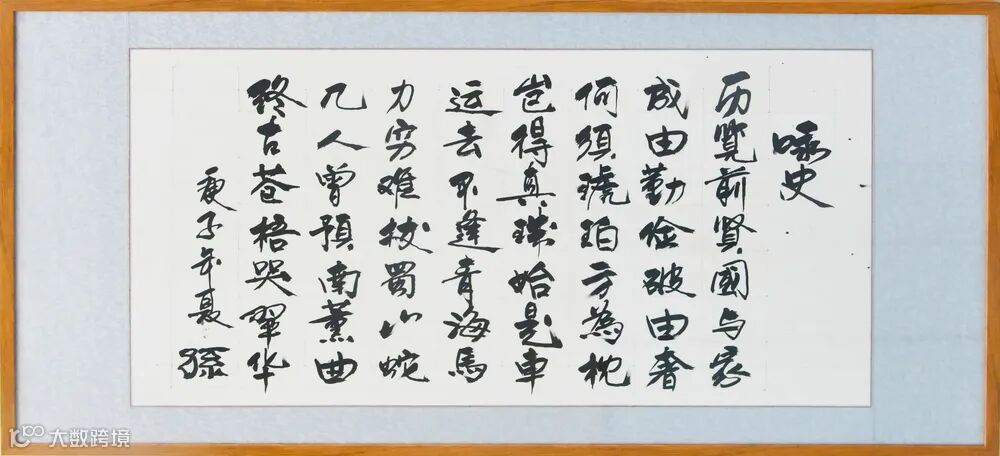 咏史
历览前賢國与家
成由勤俭破由奢
何須琥珀方為枕
岂得真珠始是車
运去不逢青海馬
力穷难拔蜀山蛇
几人曾預南薰曲
终古苍梧哭翠华
庚子年夏
孫
大数跨境